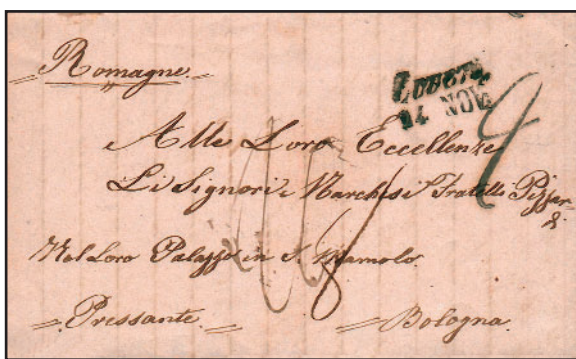 Romagne
14 NOV.
Alle Loro Eccellenze
Li Signori Marchesi Fratelli
Nel Loro Palazzo in S. Mamolo.
Pressante. Bologna.